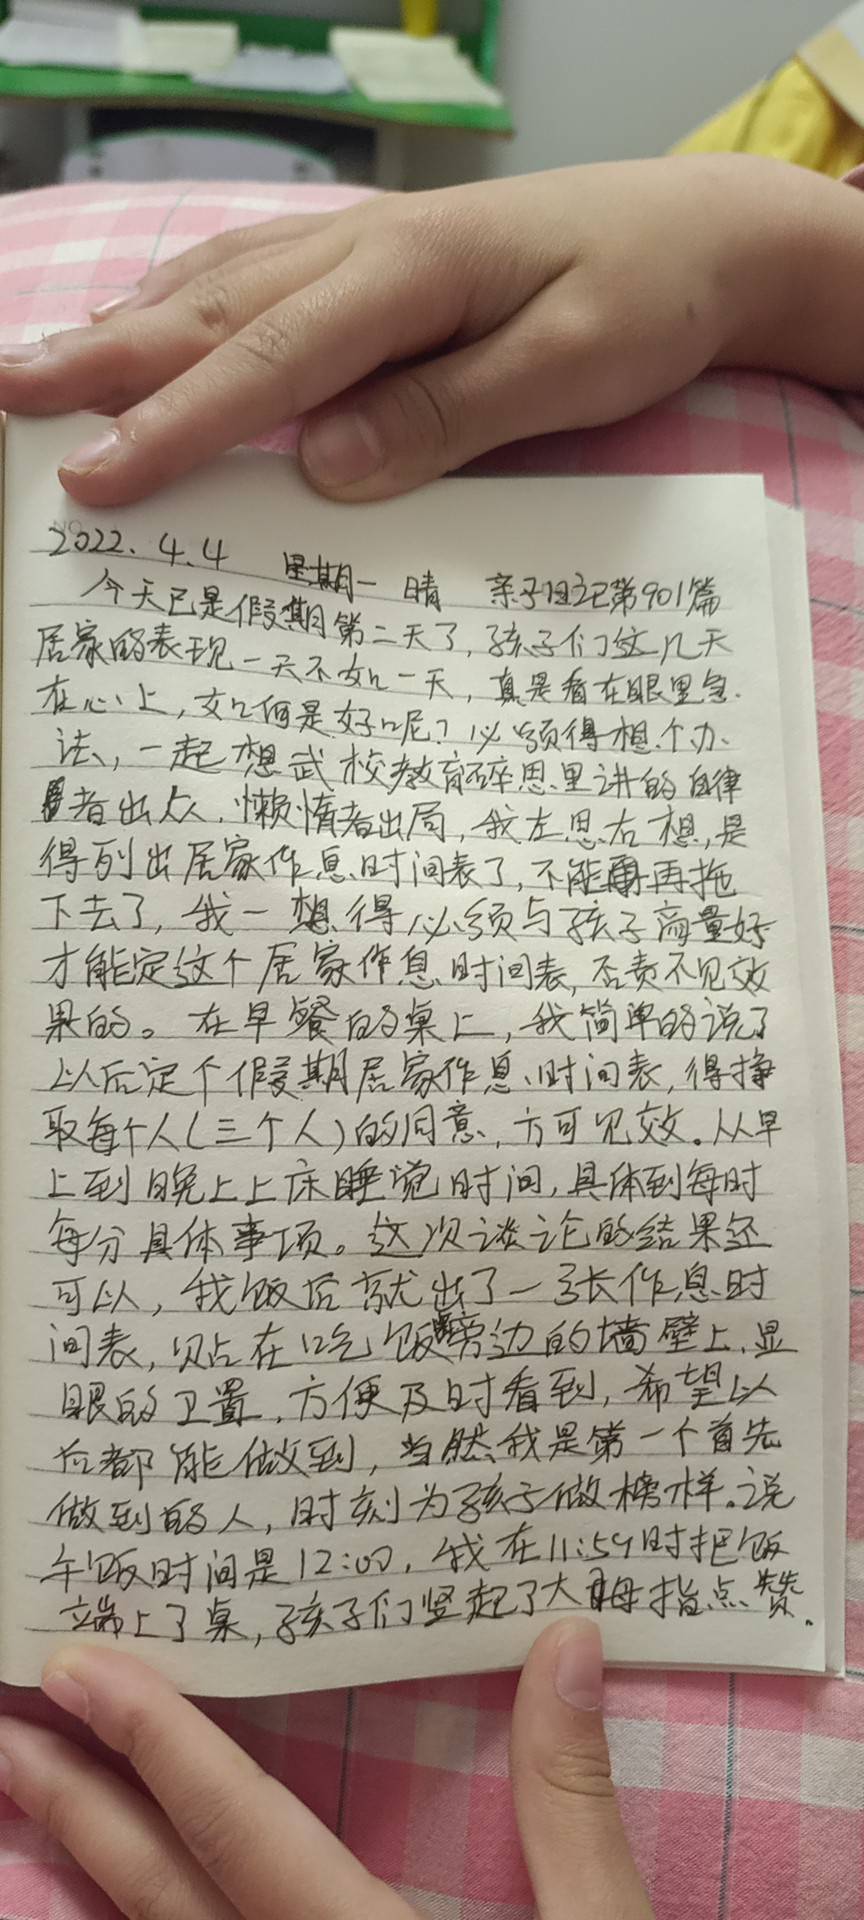 2022.4.4 星期一 晴 亲子日记第901篇
今天已是假期第二天了,孩子们这几天
居家的表现一天不如一天,真是看在眼里急
在心上,如何是好呢?必须得想个办
法,一起想武校教育碎思里讲的自律
者出众,懒惰者出局,我左思右想,是
得列出居家作息时间表了,不能再拖
下去了,我一想得必须与孩子商量好
才能定这个居家作息时间表,否责不见效
果的。在早餐的桌上,我简单的说了
以后定个假期居家作息时间表,得挣
取每个人(三个人)的同意,方可见效。从早
上到晚上上床睡觉时间,具体到每时
每分具体事项。这次谈论的结果还
可以,我饭后就出了一张作息时
间表,贴在吃饭旁边的墙壁上,显
眼的卫置,方便及时看到,希望以
后都能做到,当然我是第一个首先
做到的人,时刻为孩子做榜样。说
午饭时间是12:00,我在11:59时把饭
端上了桌,孩子们竖起了大母指点赞.